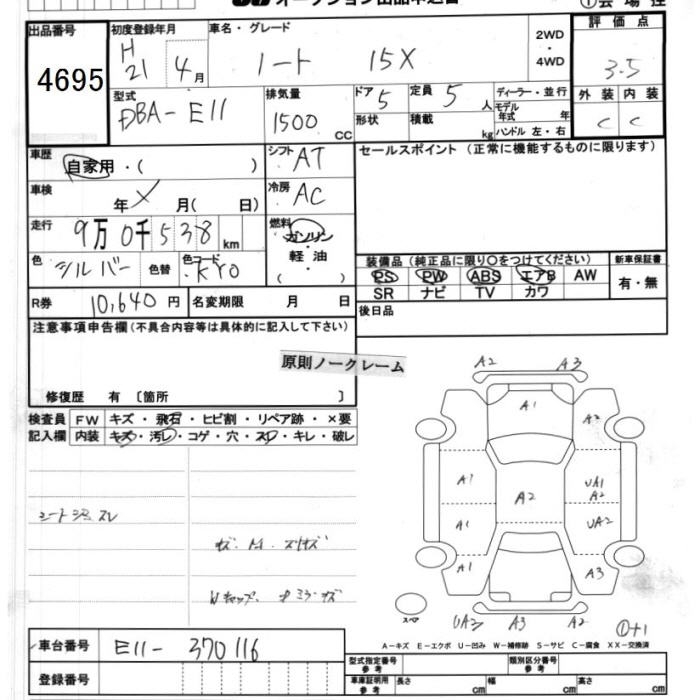 出品番号
4695
初度登録年月
H
21 4月
車名・グレード
ノート 15X
2WD
・
4WD
評価点
3.5
型式
DBA-E11
排気量
1500 CC
ドア 5
定員 5 人
形状
積載 kg
ディーラー・並行
モデル年式 年
ハンドル 左・右
外装 内装
C C
車歴
自家用・( )
シフト AT
セールスポイント (正常に機能するものに限ります)
車検
年 X 月( 日)
冷房 AC
走行
9万0千538 km
燃料
ガソリン
・
軽油
色
シルバー
色替
色コード
KY0
装備品 (純正品に限り○をつけてください)
新車保証書
PS PW ABS エアB AW
有・無
SR ナビ TV カワ
R券 10,640円
名変期限 月 日
後日品
注意事項申告欄(不具合内容等は具体的に記入して下さい)
原則ノークレーム
修復歴 有 〔箇所 〕
検査員
記入欄
FW キズ・飛石・ヒビ割・リペア跡・×要
内装 キズ・汚レ・コゲ・穴・スレ・キレ・破レ
A2 A3
A1
A2
A1
UA1
A2
A2
A1
UA2
A1
A3
スペア
UA2 A3 A2
A-キズ E-エクボ U-凹み W-補修跡 S-サビ C-腐食 XX-交換済
車台番号 E11-370116
登録番号
型式指定番号
参考
類別区分番号
参考
車庫証明用
参考
長さ cm
幅 cm
高さ cm